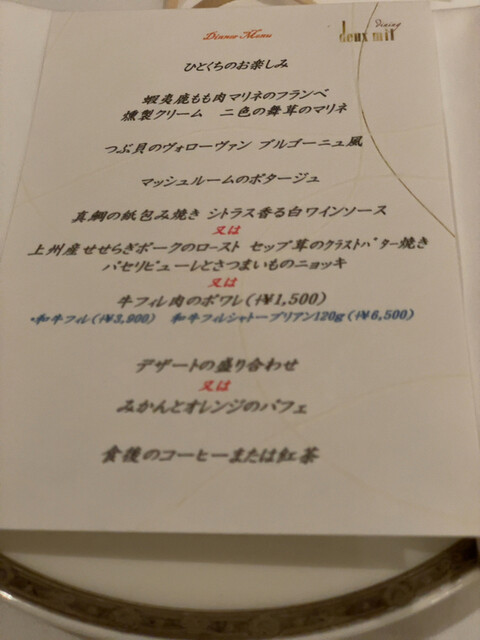 Dinner Menu
Dining
deux mil
ひとくちのお楽しみ
蝦夷鹿もも肉マリネのフランベ
燻製クリーム 二色の舞茸のマリネ
つぶ貝のヴォローヴァン ブルゴーニュ風
マッシュルームのポタージュ
真鯛の紙包み焼き シトラス香る白ワインソース
又は
上州産せせらぎポークのロースト セップ茸のクラストバター焼き
パセリピューレとさつまいものニョッキ
又は
牛フィレ肉のポワレ(+¥1,500)
・和牛フィレ(+¥3,900) 和牛フィレシャトーブリアン120g(+¥6,500)
デザートの盛り合わせ
又は
みかんとオレンジのパフェ
食後のコーヒーまたは紅茶